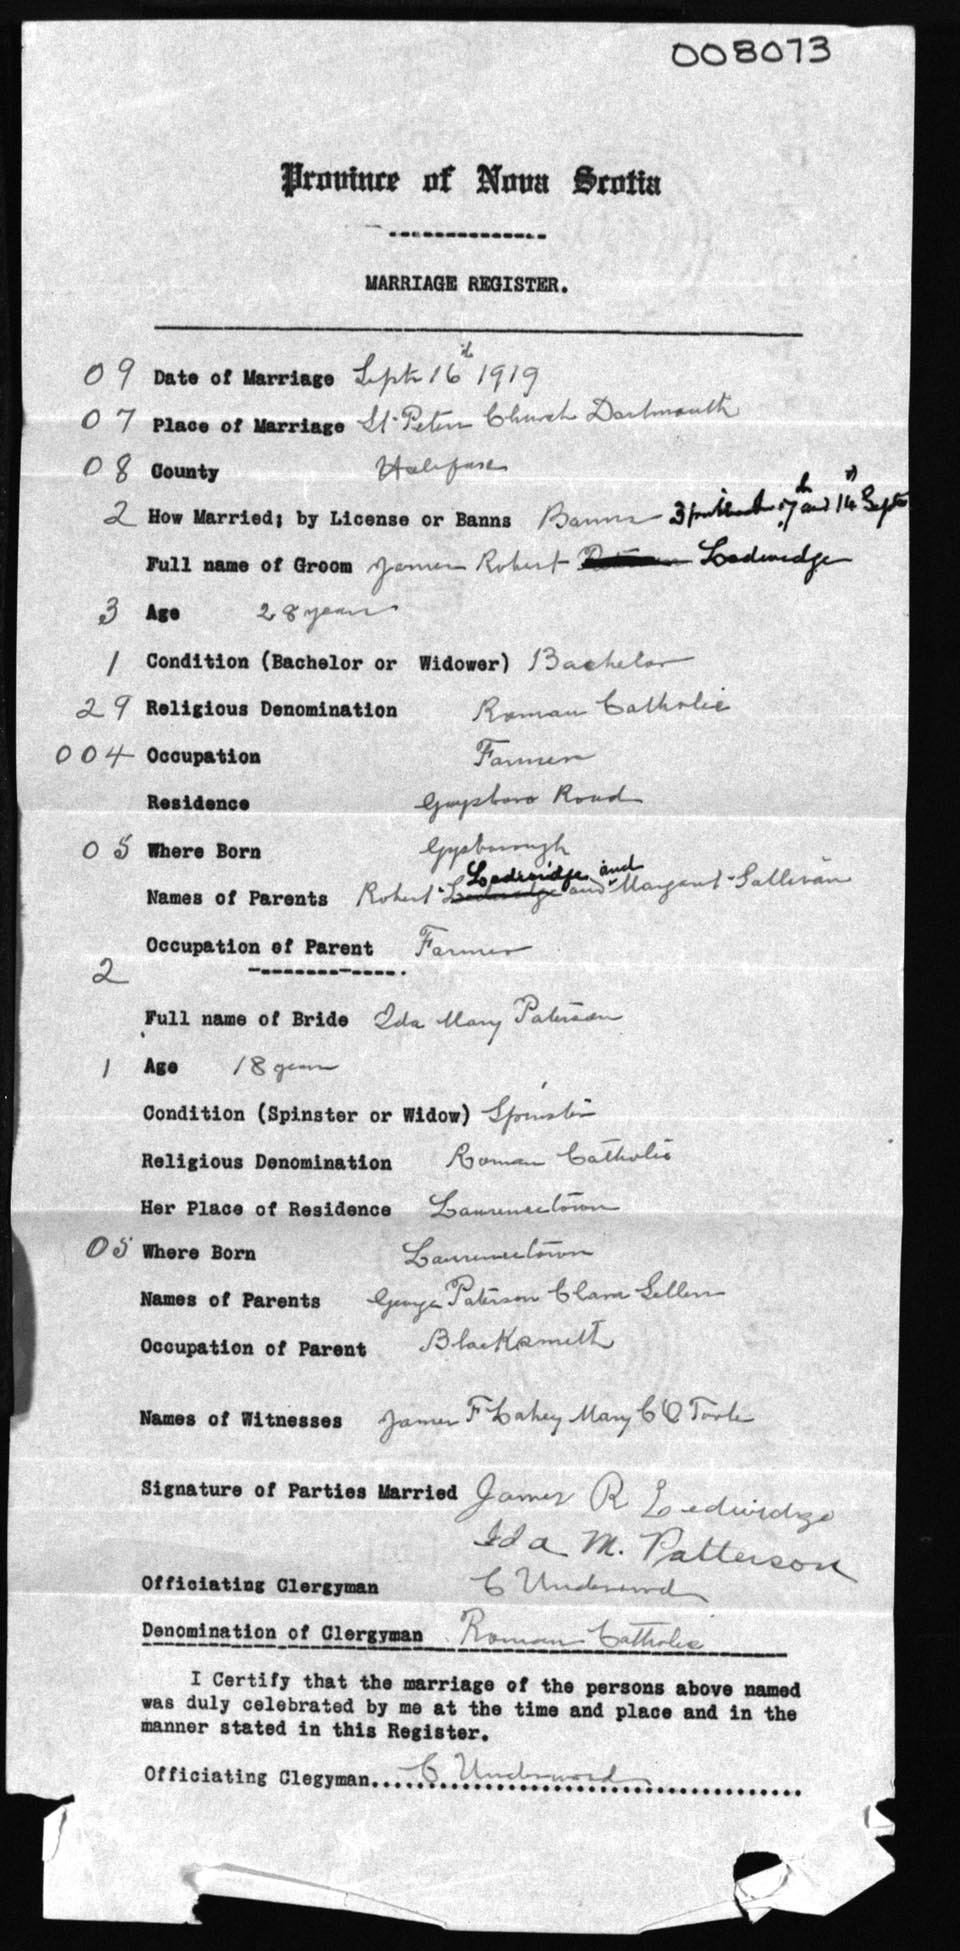 008073
Province of Nova Scotia
MARRIAGE REGISTER.
09 Date of Marriage Sept 16th 1919
07 Place of Marriage St. Peters Church Dartmouth
08 County Halifax
2 How Married; by License or Banns Banns 3 7th and 14 Sept
Full name of Groom James Robert Ledwidge
3 Age 28 years
1 Condition (Bachelor or Widower) Bachelor
29 Religious Denomination Roman Catholic
004 Occupation Farmer
Residence Guysboro Road
05 Where Born Gysborough
Ledwidge and
Names of Parents Robert Ledwidge and Margaret Sullivan
Occupation of Parent Farmer
2
Full name of Bride Ida Mary Paterson
1 Age 18 years
Condition (Spinster or Widow) Spinster
Religious Denomination Roman Catholic
Her Place of Residence Lawrencetown
05 Where Born Lawrencetown
Names of Parents George Paterson Clara Sellers
Occupation of Parent Blacksmith
Names of Witnesses James F Lahey Mary C O Toole
Signature of Parties Married James R Ledwidge
Ida M. Patterson
Officiating Clergyman C Underwood
Denomination of Clergyman Roman Catholic
I Certify that the marriage of the persons above named
was duly celebrated by me at the time and place and in the
manner stated in this Register.
Officiating Clegyman....C Underwood